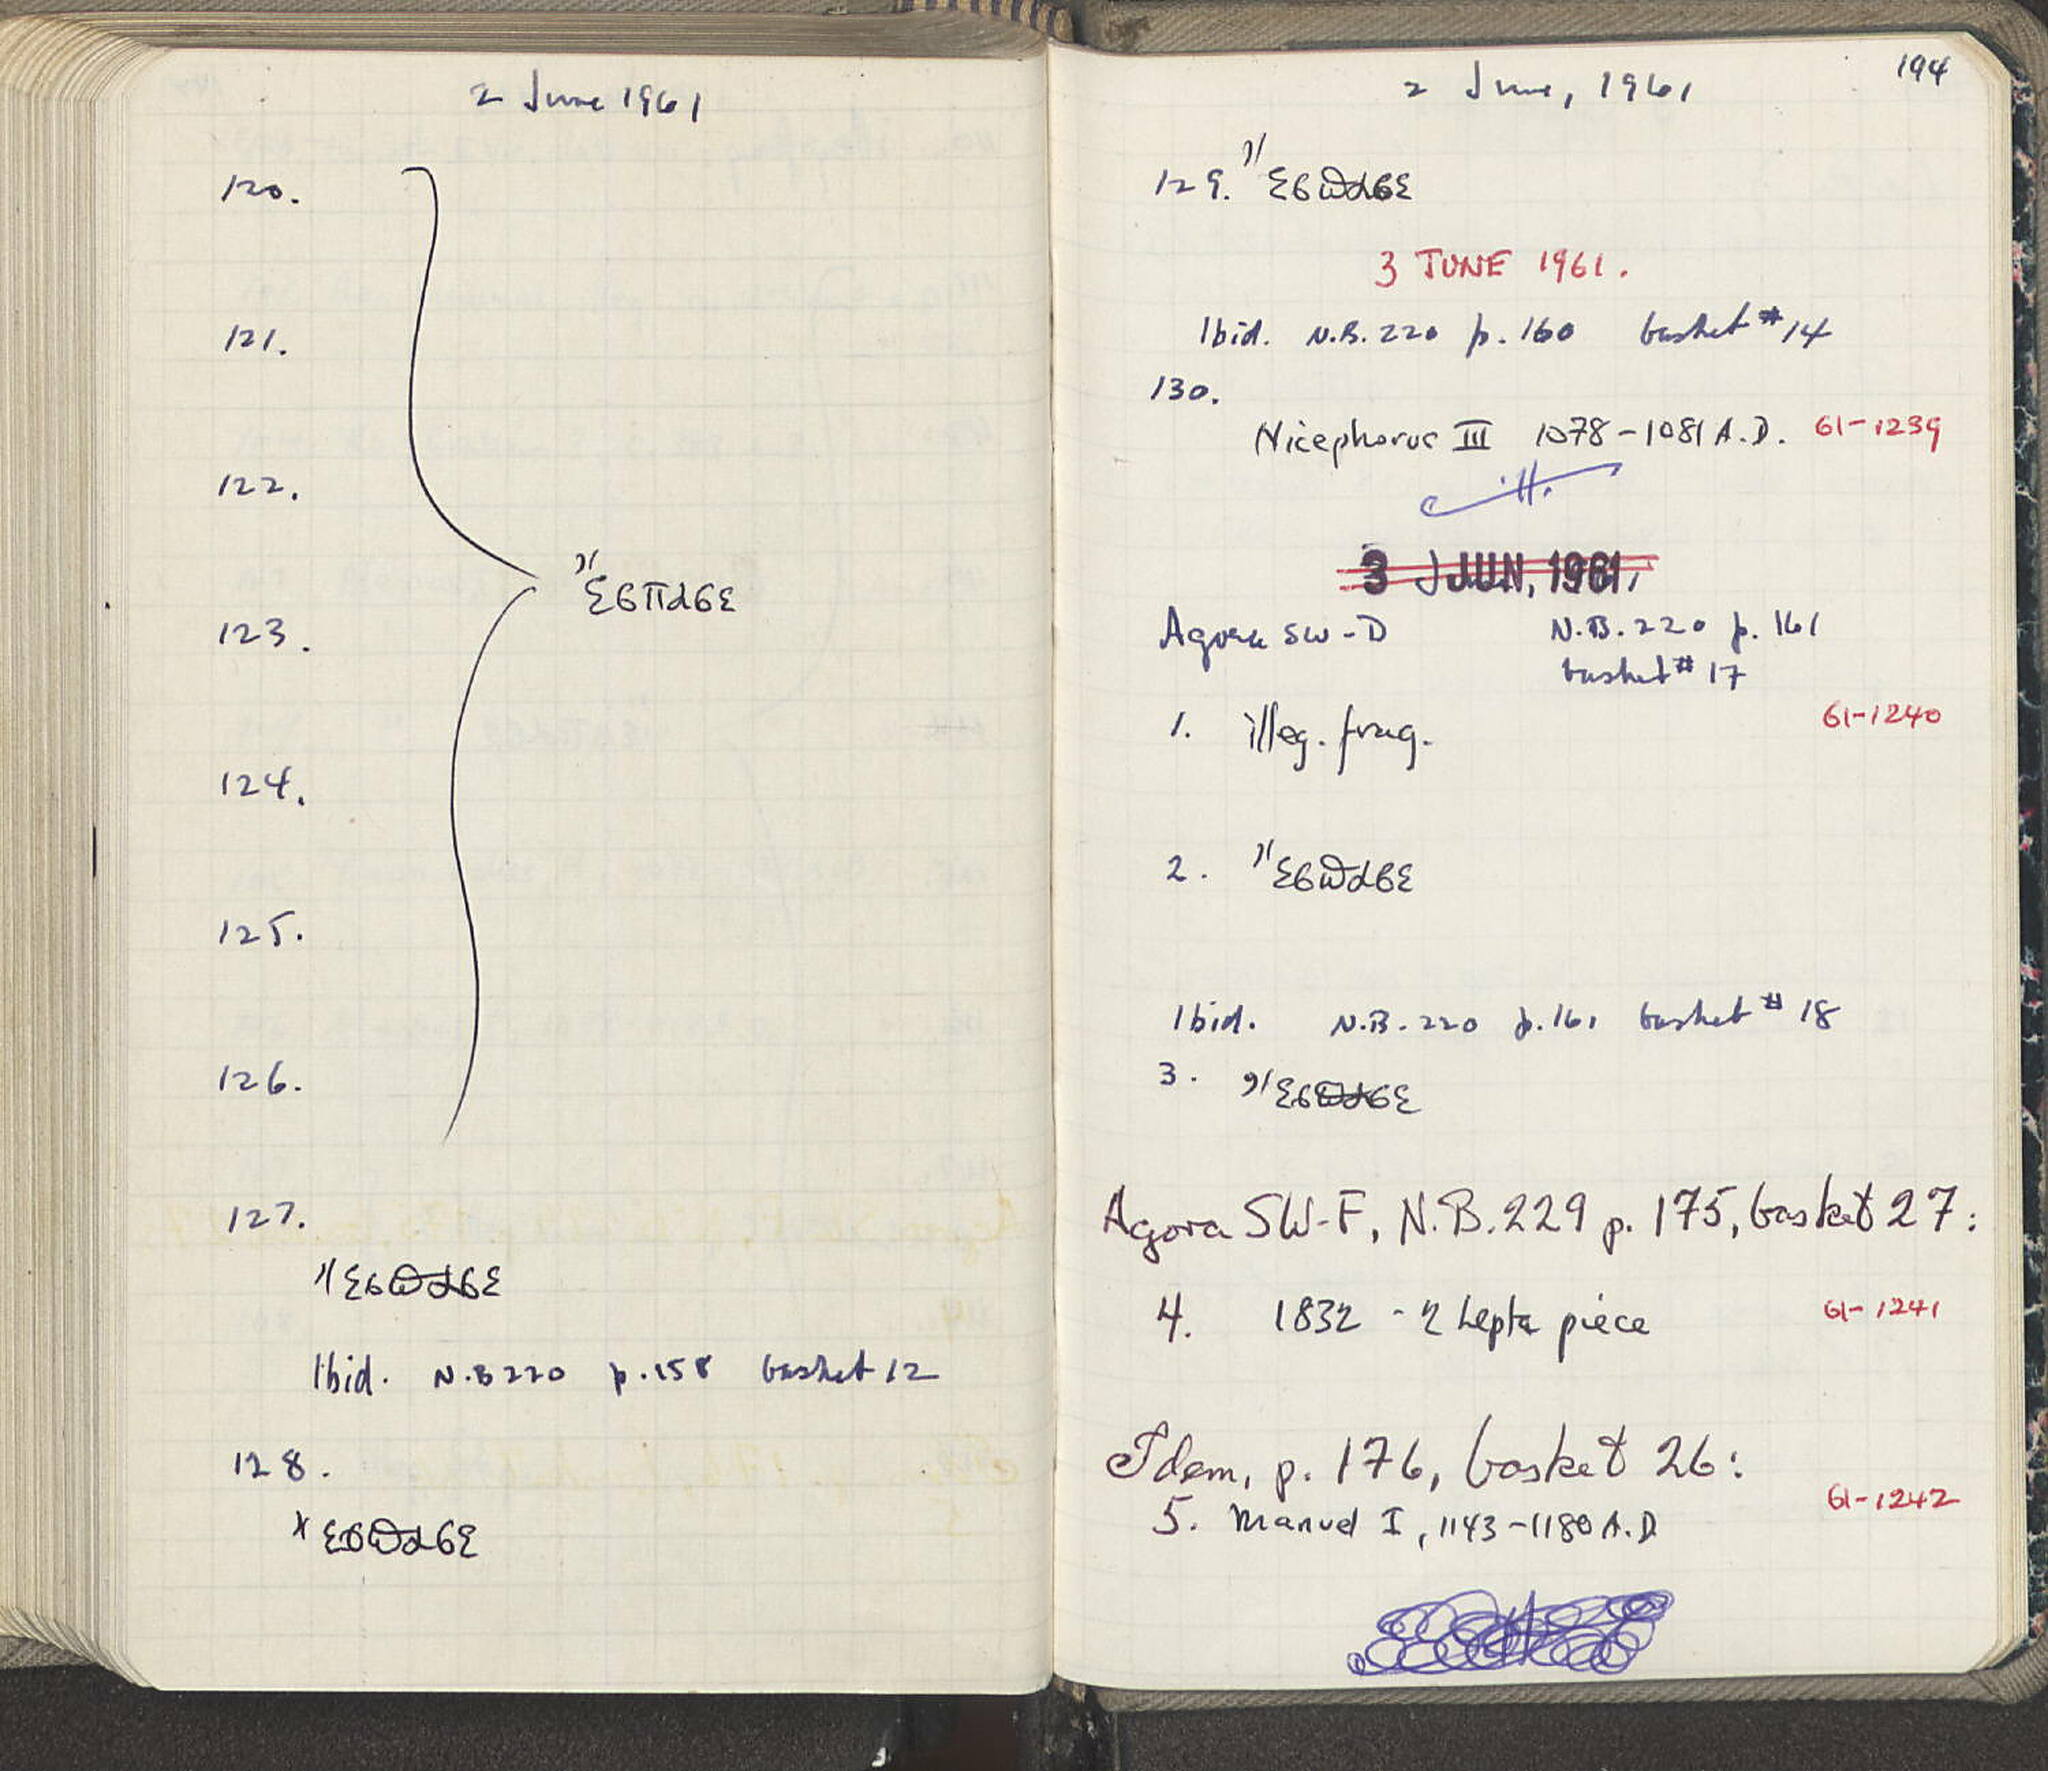 2 June 1961
120.
121.
122.
ἔσπασε
123.
124.
125.
126.
127.
ἔσπασε
Ibid. N.B 220 p. 158 basket 12
128.
ἔσπασε
194
2 June, 1961
129. ἔσπασε
3 JUNE 1961.
Ibid. N.B. 220 p. 160 basket # 14
130.
Nicephorus III 1078-1081 A.D. 61-1239
ill.
3 JUN, 1961
Agora SW-D N.B. 220 p. 161
basket # 17
61-1240
1. illeg. frag.
2. ἔσπασε
Ibid. N.B. 220 p. 161 basket # 18
3. ἔσπασε
Agora SW-F, N.B. 229 p. 175, basket 27:
4. 1832 - 2 Lepta piece 61-1241
Idem, p. 176, basket 26:
5. Manuel I, 1143-1180 A.D 61-1242